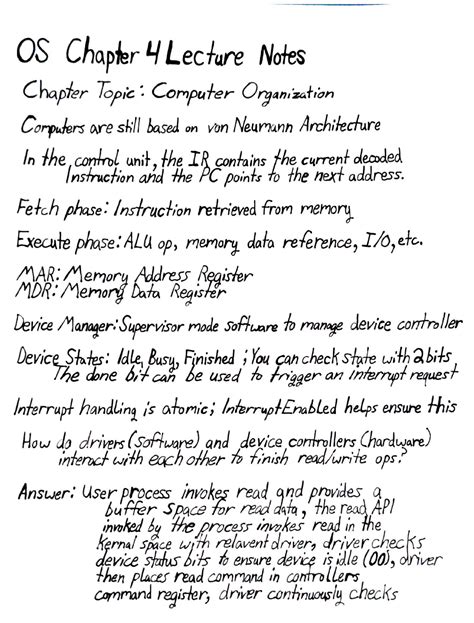 OS Chapter 4 Lecture Notes
Chapter Topic: Computer Organization
Computers are still based on von Neumann Architecture
In the control unit, the IR contains the current decoded
Instruction and the PC points to the next address.
Fetch phase: Instruction retrieved from memory
Execute phase: ALU op, memory data reference, I/O, etc.
MAR: Memory Address Register
MDR: Memory Data Register
Device Manager: Supervisor mode software to manage device controller
Device States: Idle, Busy, Finished ; You can check state with 2 bits
The done bit can be used to trigger an interrupt request
Interrupt handling is atomic; InterruptEnabled helps ensure this
How do drivers (Software) and device controllers (hardware)
interact with each other to finish read/write ops?
Answer: User process invokes read and provides a
buffer space for read data, the read API
invoked by the process invokes read in the
Kernal space with relavent driver, driver checks
device status bits to ensure device is idle (00), driver
then places read command in controllers
command register, driver continuously checks